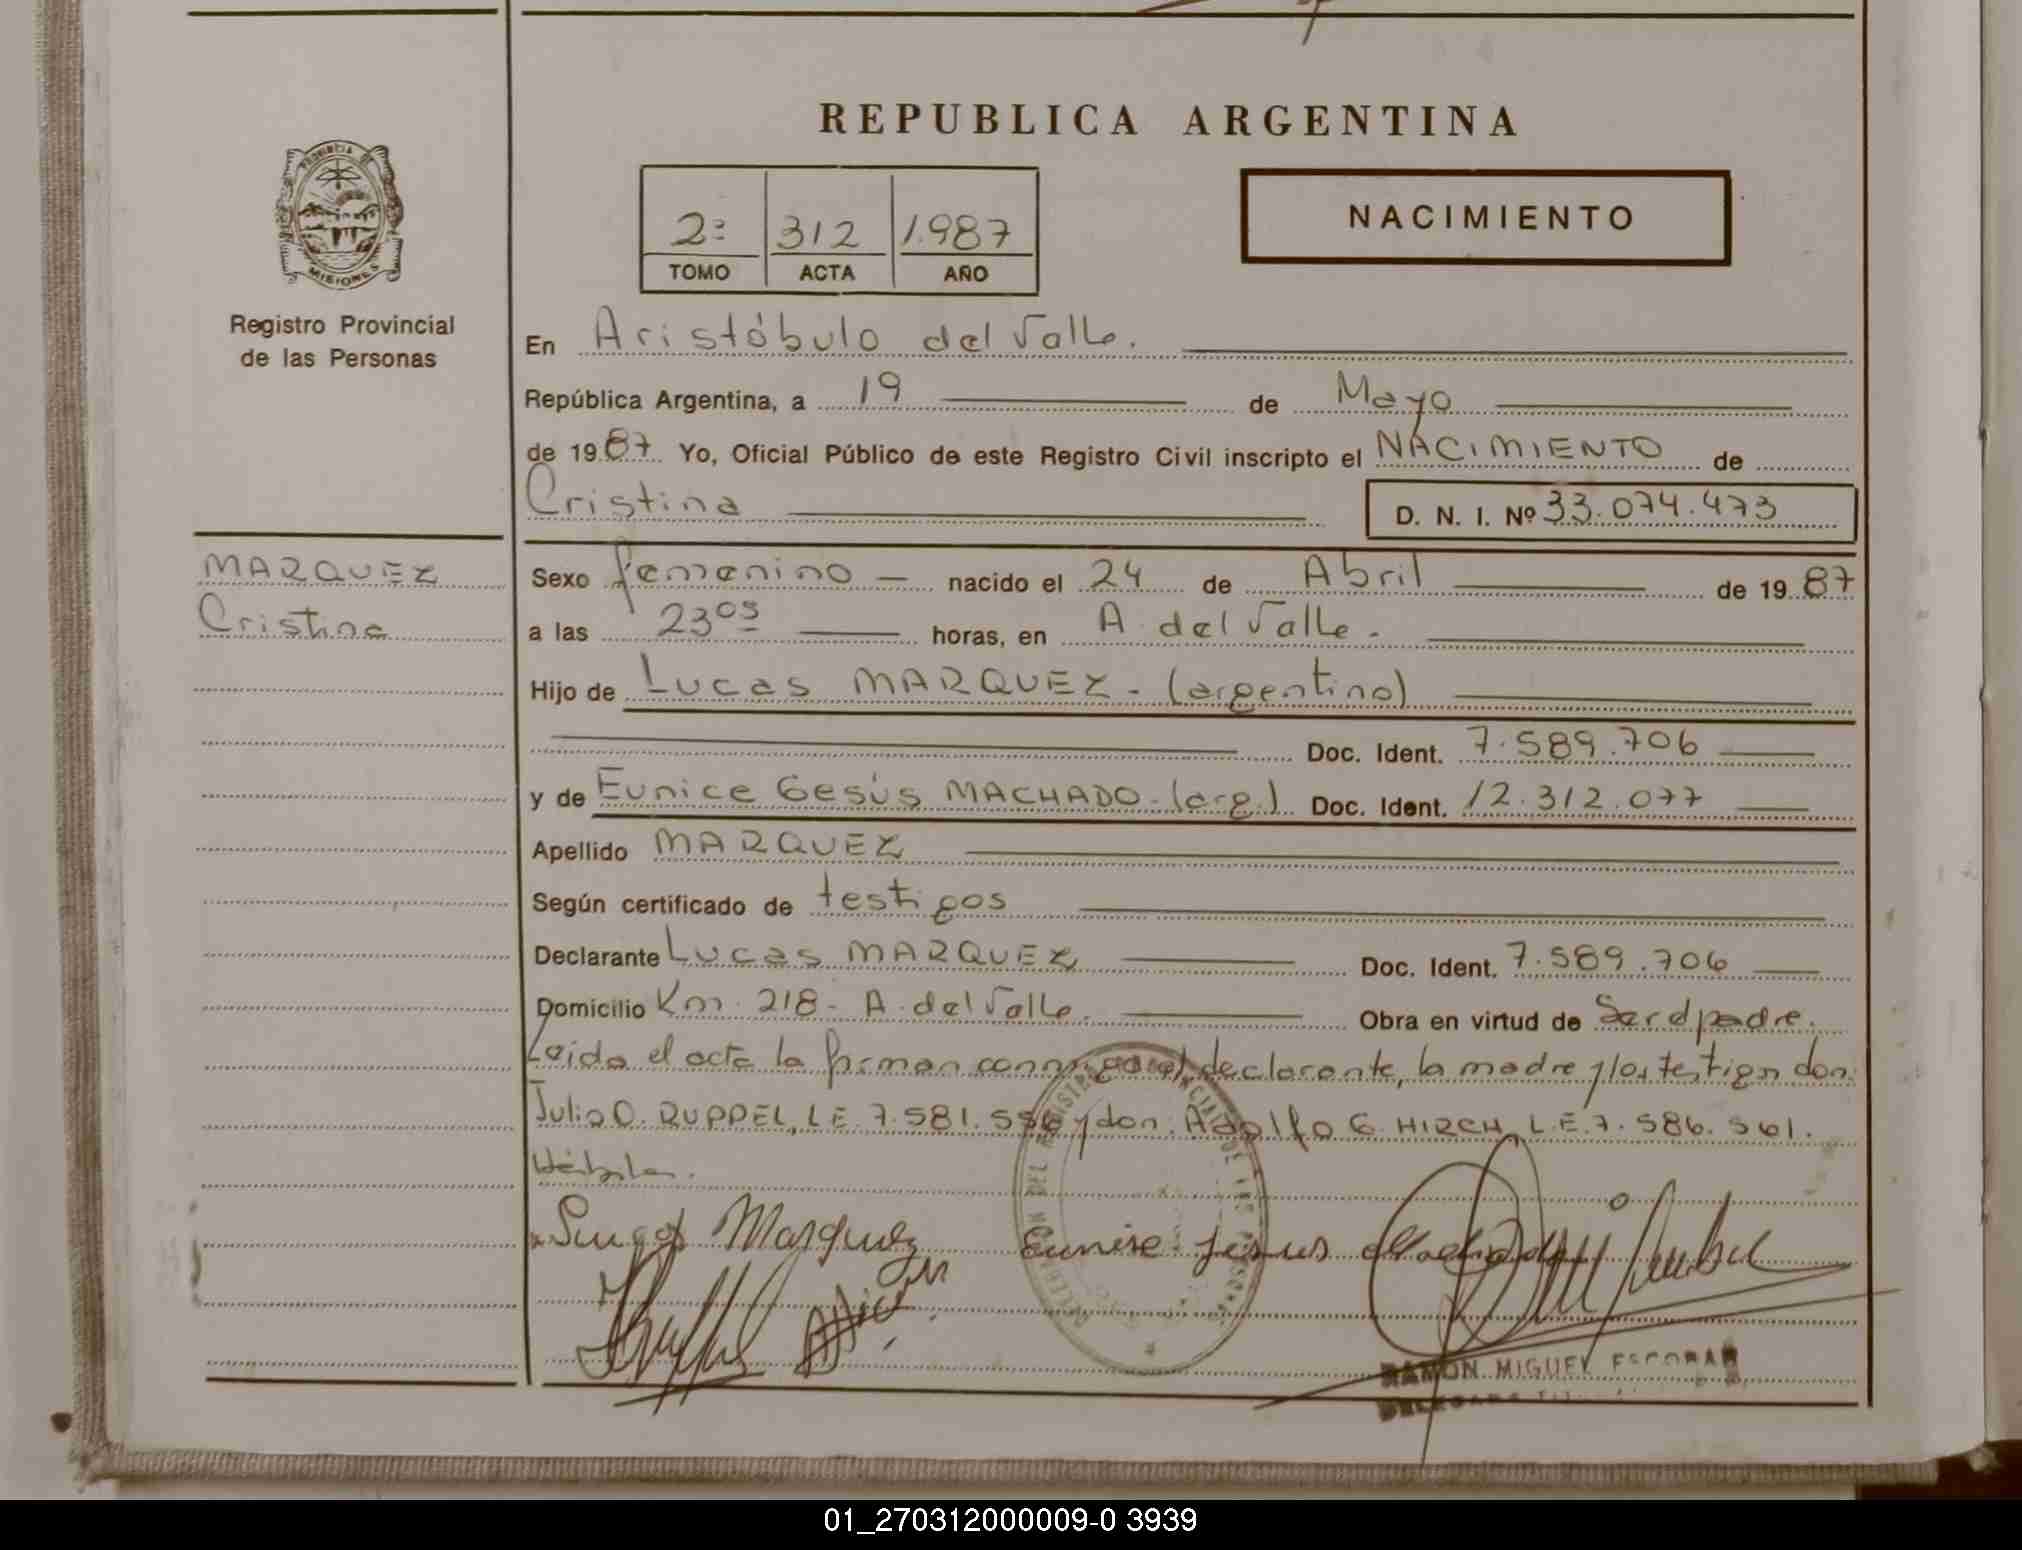 REPUBLICA ARGENTINA
PROVINCIA DE
MISIONES
Registro Provincial
de las Personas
2º 312 1.987
TOMO ACTA AÑO
NACIMIENTO
En Aristóbulo del Valle.
República Argentina, a 19 de Mayo
de 1987 Yo, Oficial Público de este Registro Civil inscripto el NACIMIENTO de
Cristina D. N. I. Nº 33.074.473
MARQUEZ
Cristina
Sexo femenino - nacido el 24 de Abril de 1987
a las 23 05 horas, en A. del Valle.
Hijo de Lucas MARQUEZ - (argentino)
Doc. Ident. 7.589.706
y de Eunice Gesús MACHADO - (arg.) Doc. Ident. 12.312.077
Apellido MARQUEZ
Según certificado de testigos
Declarante Lucas MARQUEZ Doc. Ident. 7.589.706
Domicilio Km. 218 - A. del Valle. Obra en virtud de Ser el padre.
Leida el acta la firman conmigo el declarante, la madre y los testigos don:
Julio O. RUPPEL, L.E. 7.581.556 y don: Adolfo G. HIRCH, L.E. 7.586.561.
Marquez
Eunise Jesus
RAMON MIGUEL ESCOBAR
01_270312000009-0 3939